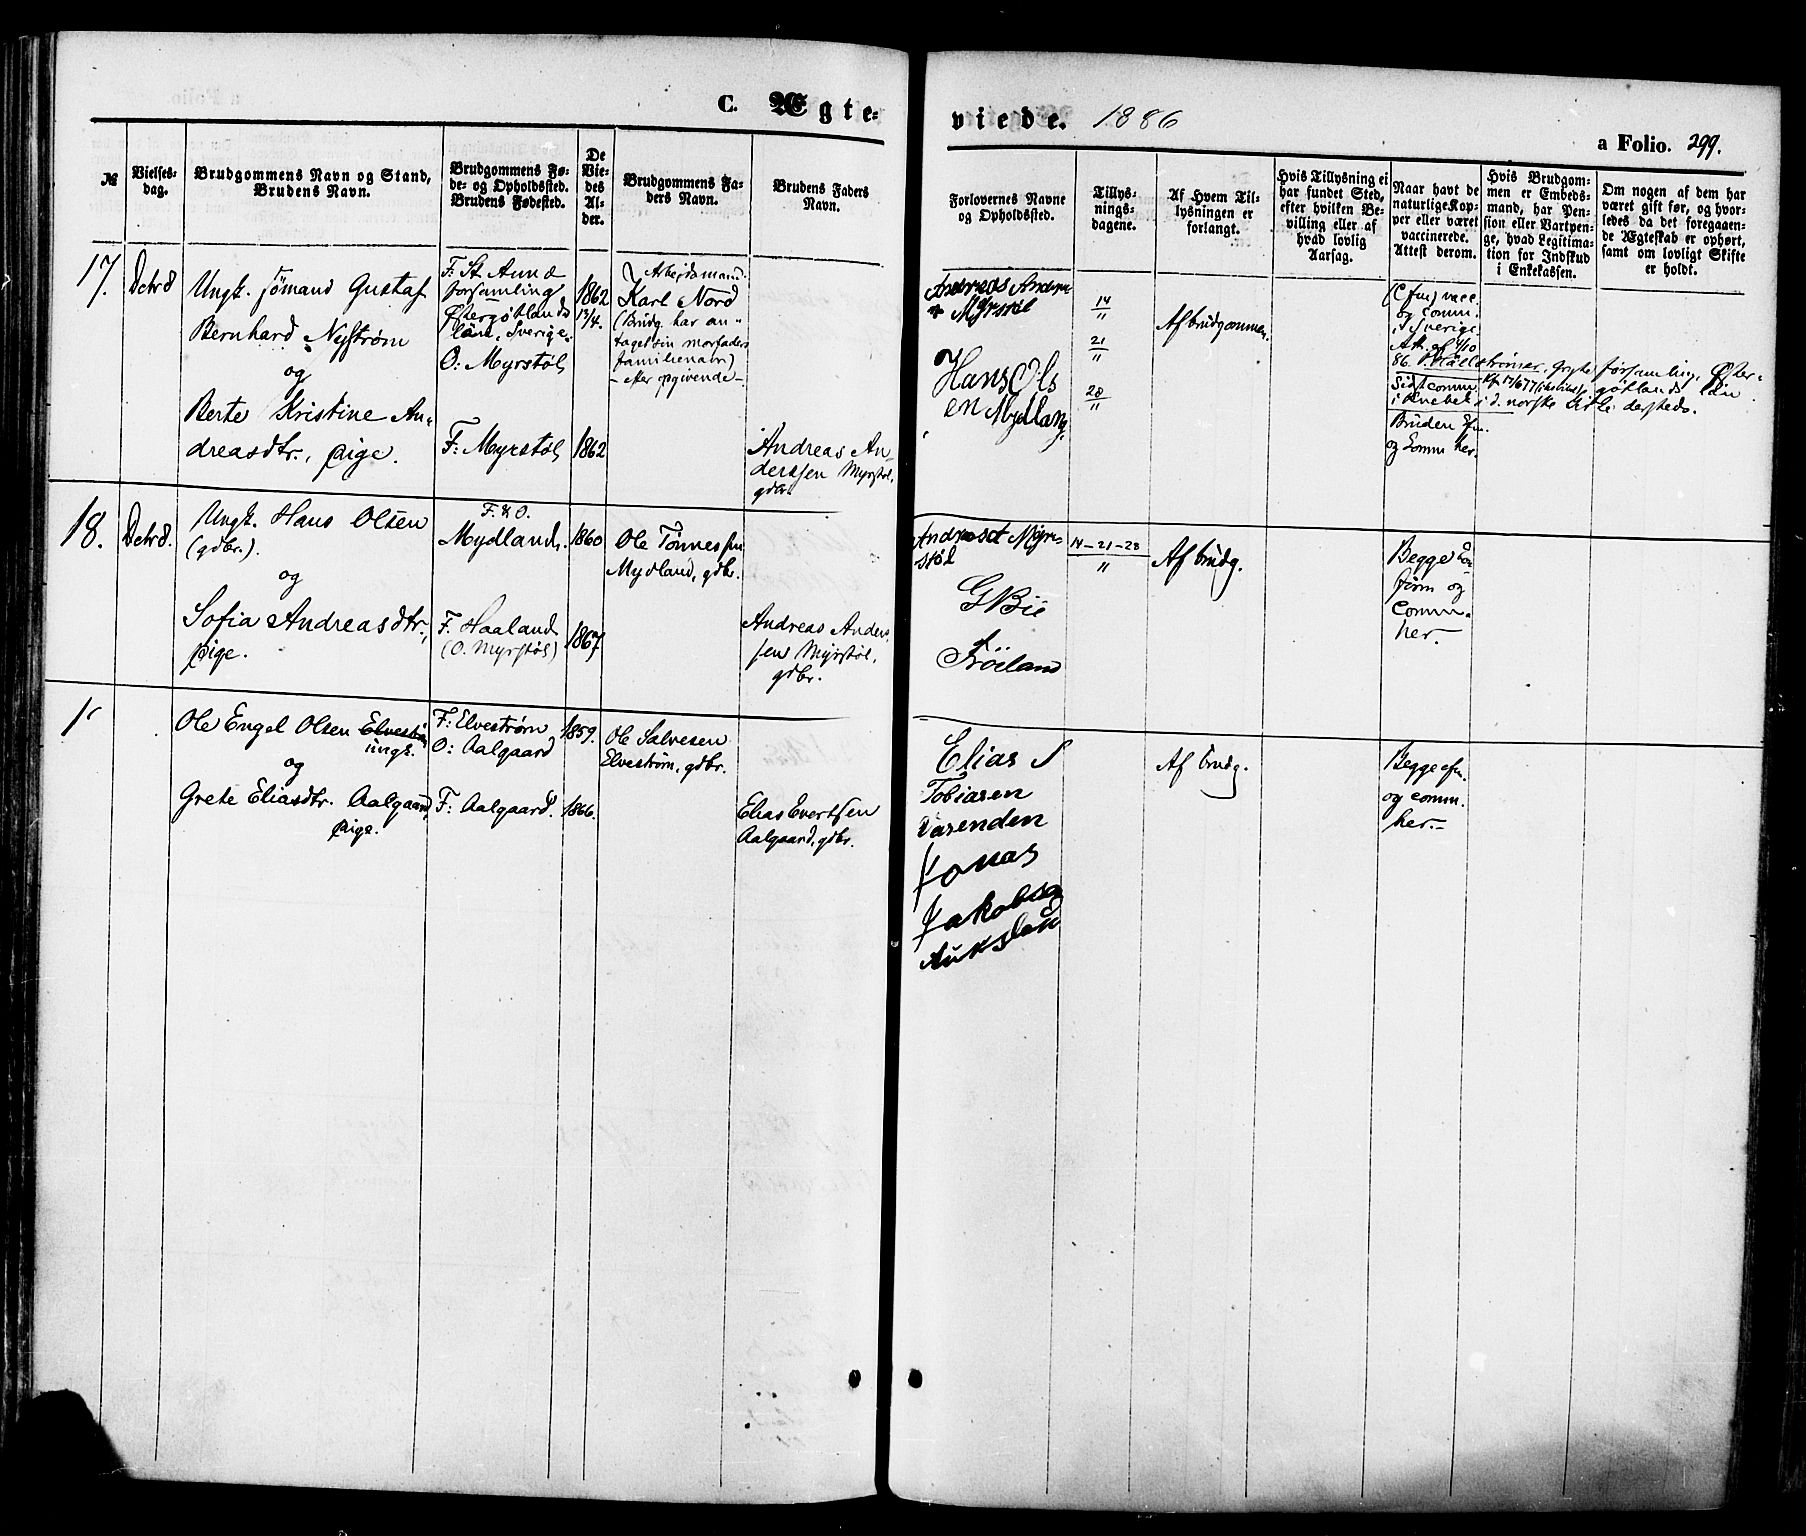 C. Ægte-
viede. 1886
a Folio. 299.
№
Vielses-
dag.
Brudgommens Navn og Stand,
Brudens Navn.
Brudgommens Fø-
de- og Opholdssted.
Brudens Fødested.
De
Vie-
des
Al-
der.
Brudgommens Fa-
ders Navn.
Brudens Faders
Navn.
Forlovernes Navne
og Opholdssted.
Tillys-
nings-
dagene.
Af Hvem Til-
lysningen er
forlangt.
Hvis Tillysning ei
har fundet Sted,
efter hvilken Be-
villing eller af
hvad lovlig
Aarsag.
Naar havt de
naturlige Kop-
per eller været
vaccinerede.
Attest derom.
Hvis Brudgom-
men er Embeds-
mand, har Pen-
sion eller Vartpen-
ge, hvad Legitima-
tion for Indskud
i Enkekassen.
Om nogen af dem har
været gift før, og hvor-
ledes da det foregaaen-
de Ægteskab er ophørt,
samt om lovligt Skifte
er holdt.
17.
Ungk. sømand Gustaf
Bernhard Nystrøm
og
Berte Kristine An-
dreasdtr., pige.
F: St. Annæ
forsamling
Østergötlands
län, Sverige.
O: Myrstøl
F: Myrstøl
1862
13/4.
1862
Arbejdsmand
Karl Nord
(Brudg. har an-
taget sin morfaders
familienavn)
- efter opgivende -
Andreas An-
derssen Myrstøl,
gdbr.
Andreas Andern
Myrstøl
Hans Ols
en Mydland,
14
11
21
11
28
11
Af brudgommen.
vacc.
og comm.
i Sverige
forsamling, Øster-
götlands län
Sidst comm.
i d. norske
Bruden cfm.
og komm her.
18.
Ungk. Hans Olsen
(gdbr.).
og
Sofia Andreasdtr.,
pige.
F. & O.
Mydland.
F. Haaland
(O. Myrstøl)
1860
1867
Ole Tønnessen
Mydland, gdbr.
Andreas Anders
sen Myrstøl,
gdbr.
Myr-
støl
G Bie
Frøiland
14-21-28
11
Af brudg.
Begge kon
firm og
comm.
her.-
1
Ole Engel Olsen
ungk.
og
Grete Eliasdtr. Aalgaard,
pige.
F: Elvestrøm
O: Aalgaard
F: Aalgaard.
1859.
1866.
Ole Salvesen
Elvestrøm, gdbr.
Elias Evertsen
Aalgaard, gdbr.
Elias S
Tobiasen
Jonas
Jakobsen
Auksland
Af brudg.
Begge cfm.
og comm.
her.-